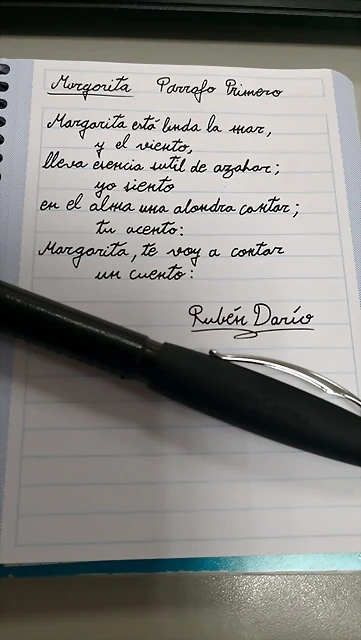 Margarita Parrafo Primero
Margarita está linda la mar,
y el viento,
lleva esencia sutil de azahar;
yo siento
en el alma una alondra cantar;
tu acento:
Margarita, te voy a contar
un cuento:
Rubén Darío